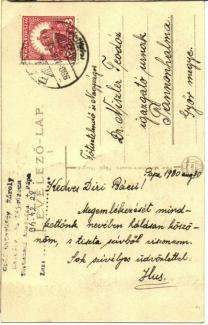 LEVELEZŐ-LAP
Főtisztelendő és Nagyságos
Dr. Niszler Teodóz
igazgató urnak
Pannonhalma.
Győr megye.
Pápa, 1930 aug 30
Kedves Diri Bácsi!
Megemlékezését mind-
kettőnk nevében hálásan köszö-
nöm, s tiszta szívből viszonzom.
Sok szívélyes üdvözlettel
Ilus.